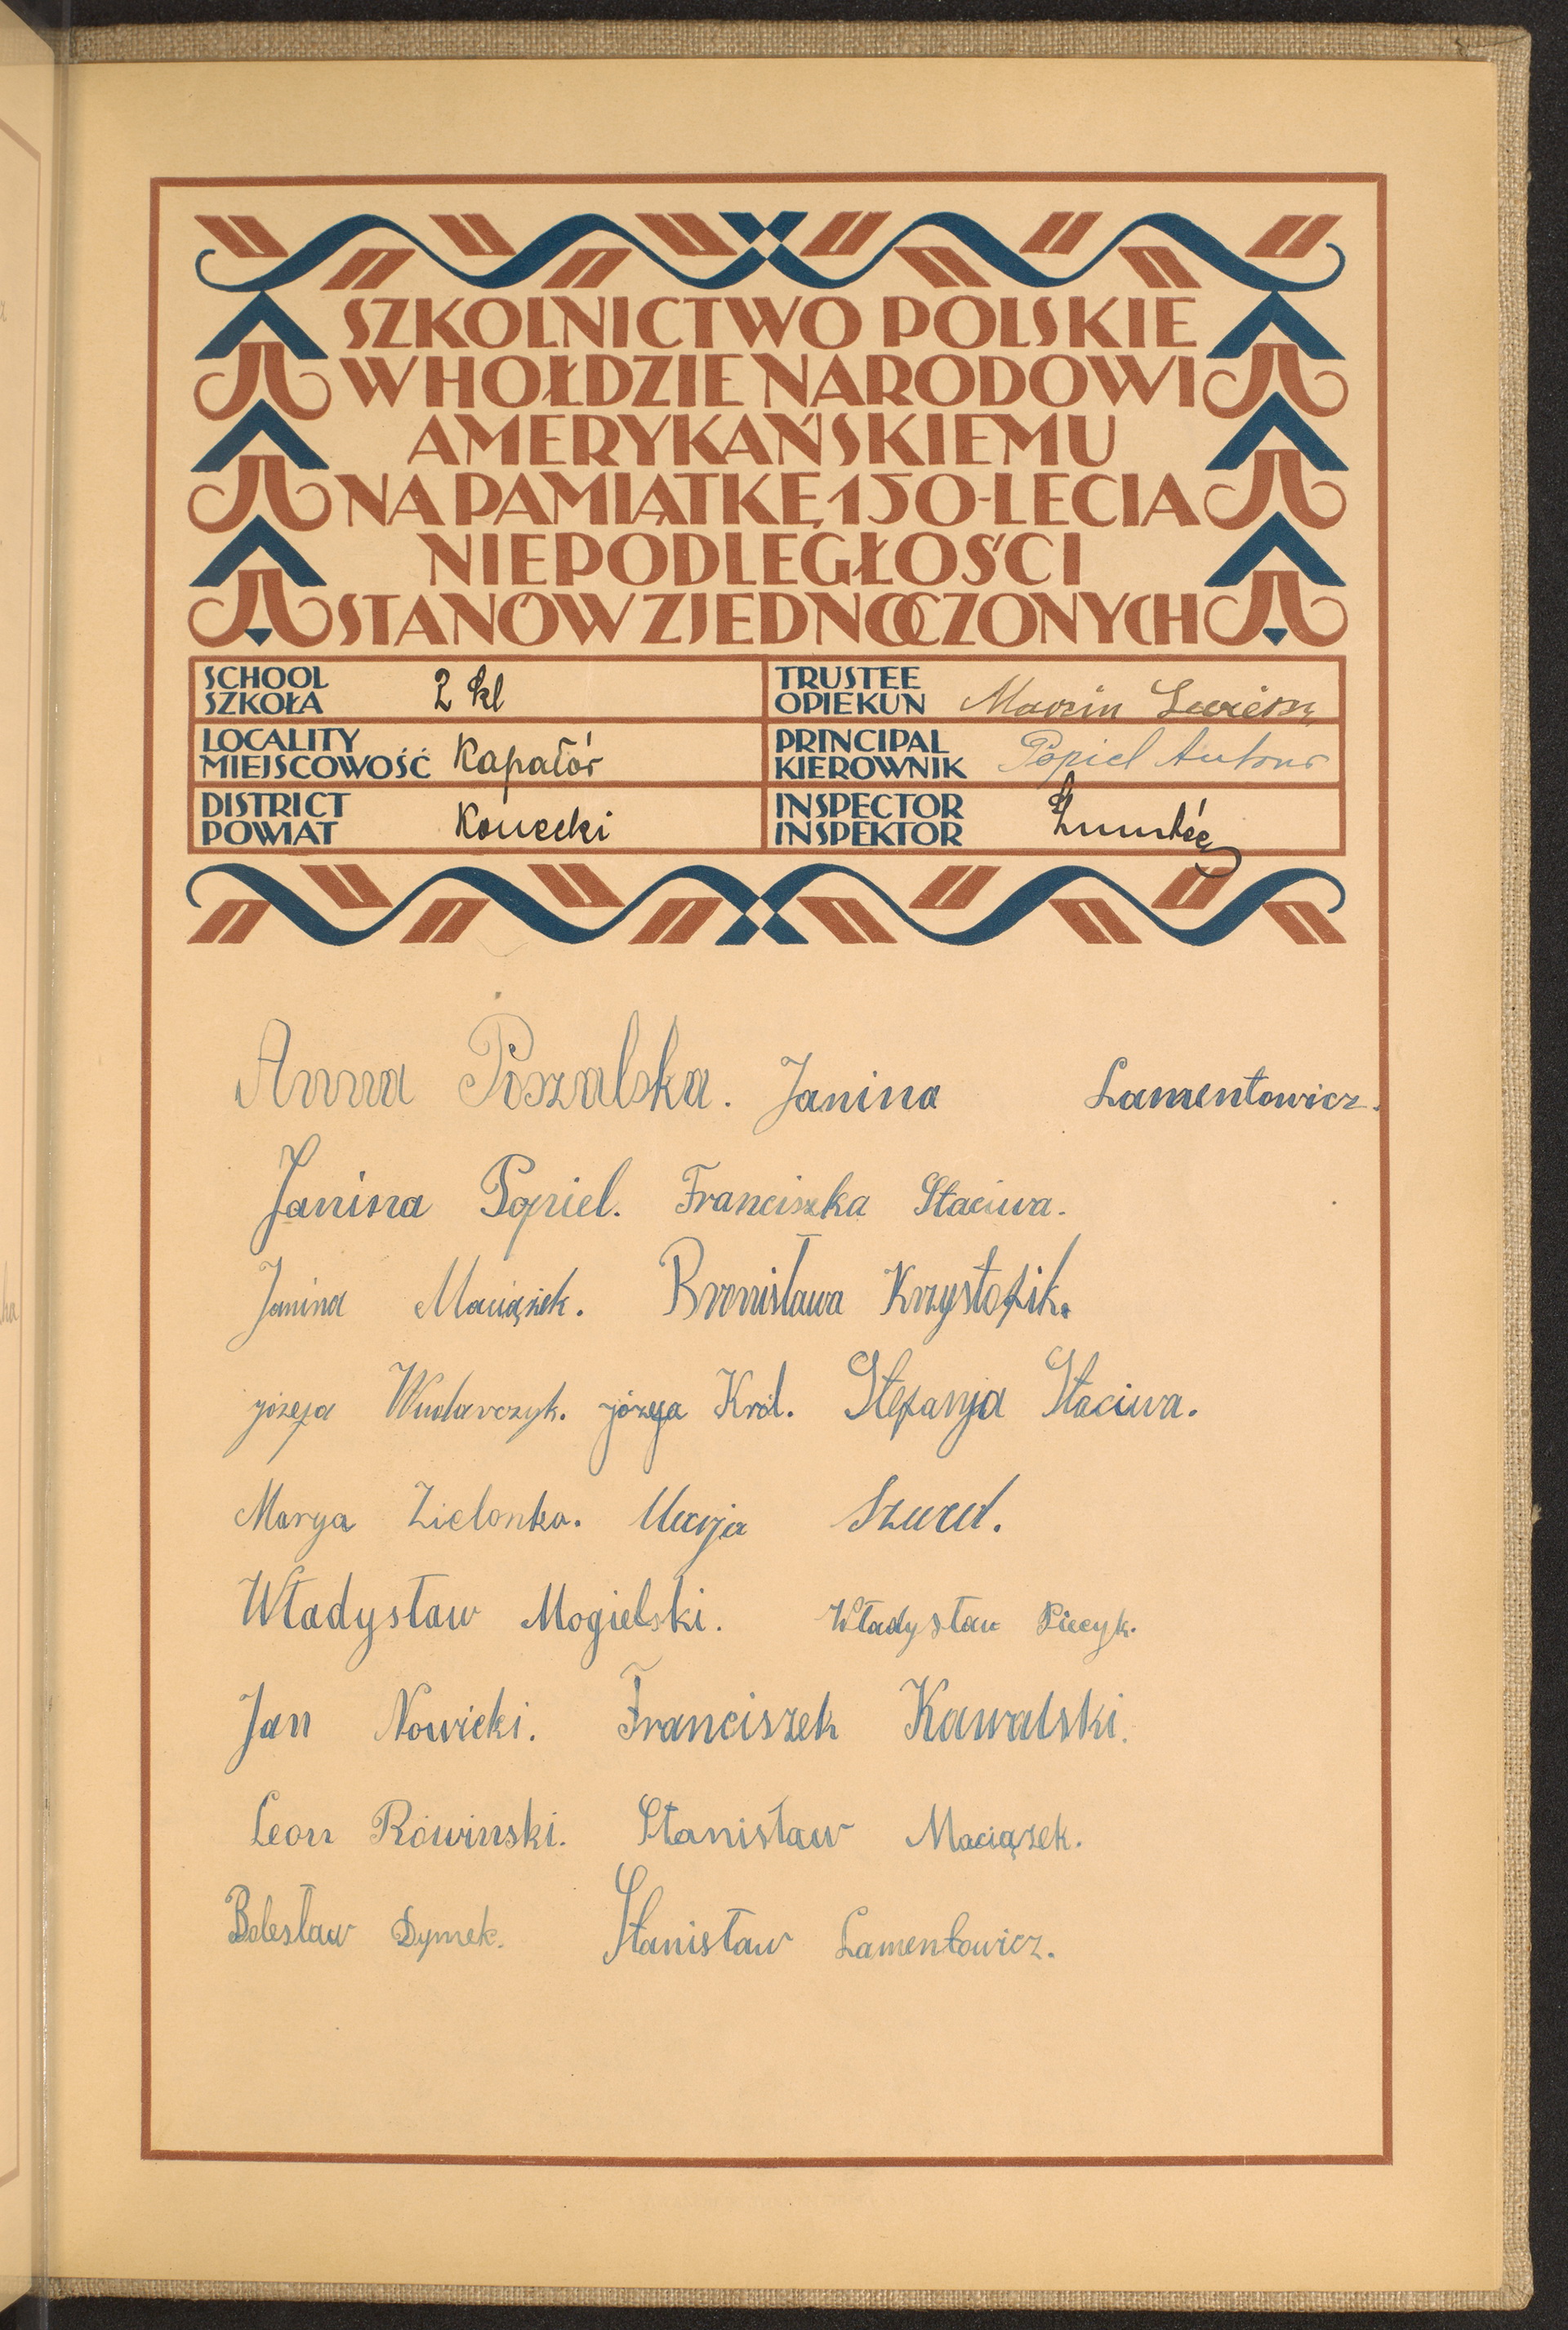 SZKOLNICTWO POLSKIE
W HOŁDZIE NARODOWI
AMERYKAŃSKIEMU
NA PAMIĄTKĘ 150-LECIA
NIEPODLEGŁOŚCI
STANÓW ZJEDNOCZONYCH
SCHOOL
SZKOŁA 2 kl
TRUSTEE
OPIEKUN Marcin
LOCALITY
MIEJSCOWOŚĆ Kapałór
PRINCIPAL
KIEROWNIK Popiel Antoni
DISTRICT
POWIAT Konecki
INSPECTOR
INSPEKTOR
Anna Poszalska. Janina Lamentowicz.
Janina Popiel. Franciszka Staciwa.
Janina Maciążek. Bronisława Krzystofik.
józefa Wudarczyk. józefa Król. Stefanja Staciwa.
Marya Zielonka. Marja Szured.
Władysław Mogielski. Władysław Piecyk.
Jan Nowicki. Franciszek Kawalski.
Leon Rówinski. Stanisław Maciązek.
Bolesław Dymek. Stanisław Lamentowicz.